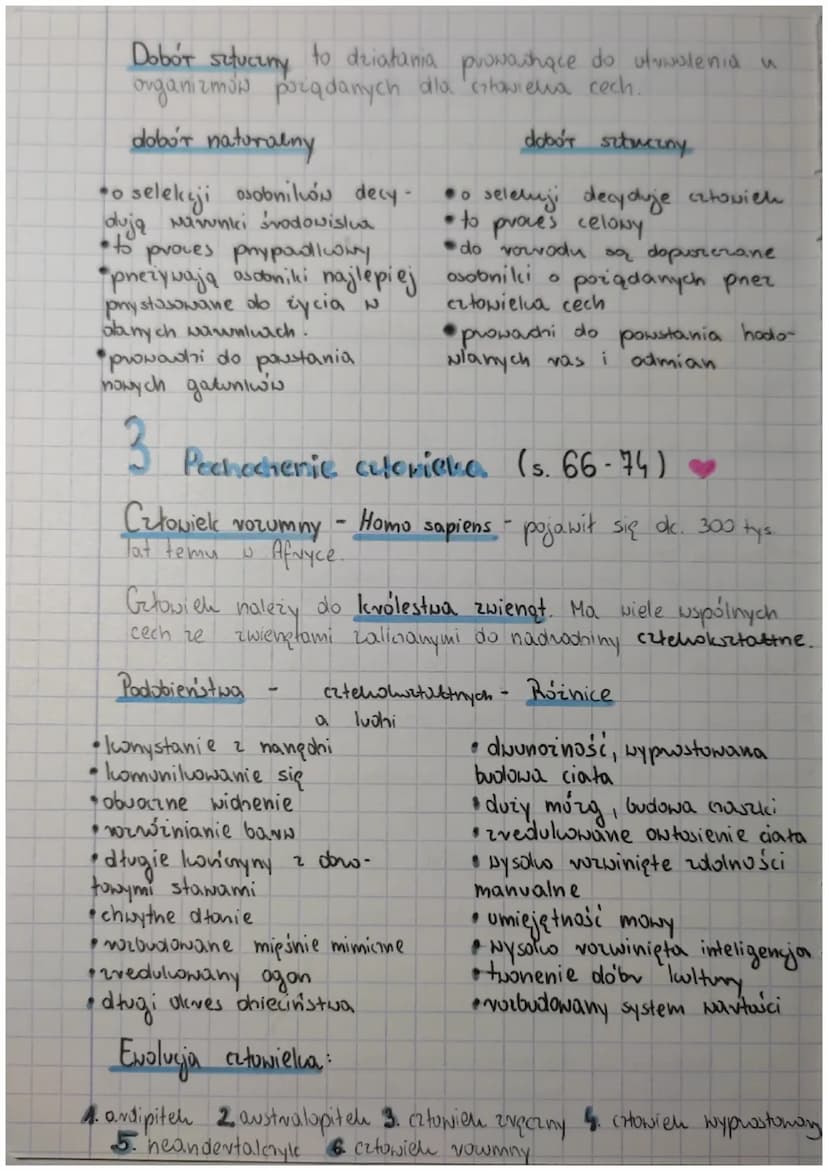 Dobór sztuczny to działania prowadzące do utrwalenia u
organizmów pożądanych dla człowieka cech.
dobór naturalny
dobór sztuczny
• o selekcji osobników decy-
dują warunki środowiska
• to proces przypadkowy
• przeżywają osobniki najlepiej
przystosowane do życia w
danych warunkach.
• prowadzi do powstania
nowych gatunków
• o selekcji decyduje człowiek
• to proces celowy
• do rozrodu są dopuszczane
osobniki o pożądanych przez
człowieka cech
• prowadzi do powstania hodo-
wlanych ras i odmian
3 Pochodzenie człowieka (s. 66-74)
Człowiek rozumny - Homo sapiens - pojawił się ok. 300 tys.
lat temu w Afryce.
Człowiek należy do królestwa zwierząt. Ma wiele wspólnych
cech ze zwierzętami zaliczanymi do nadrodziny człekokształtne.
Podobieństwa - człekokształtnych - Różnice
a ludzi
• korzystanie z narzędzi
• komunikowanie się
• obuoczne widzenie
• rozróżnianie barw
• długie kończyny z obro-
towymi stawami
• chwytne dłonie
• rozbudowane mięśnie mimiczne
• zredukowany ogon
• długi okres dzieciństwa
• dwunożność, wyprostowana
budowa ciała
• duży mózg, budowa czaszki
• zredukowane owłosienie ciała
• wysoko rozwinięte zdolności
manualne
• umiejętność mowy
• wysoko rozwinięta inteligencja
• tworzenie dóbr kultury
• rozbudowany system wartości
Ewolucja człowieka:
1. ardipitek 2. australopitek 3. człowiek zręczny 4. człowiek wyprostowany
5. neandertalczyk 6. człowiek rozumny